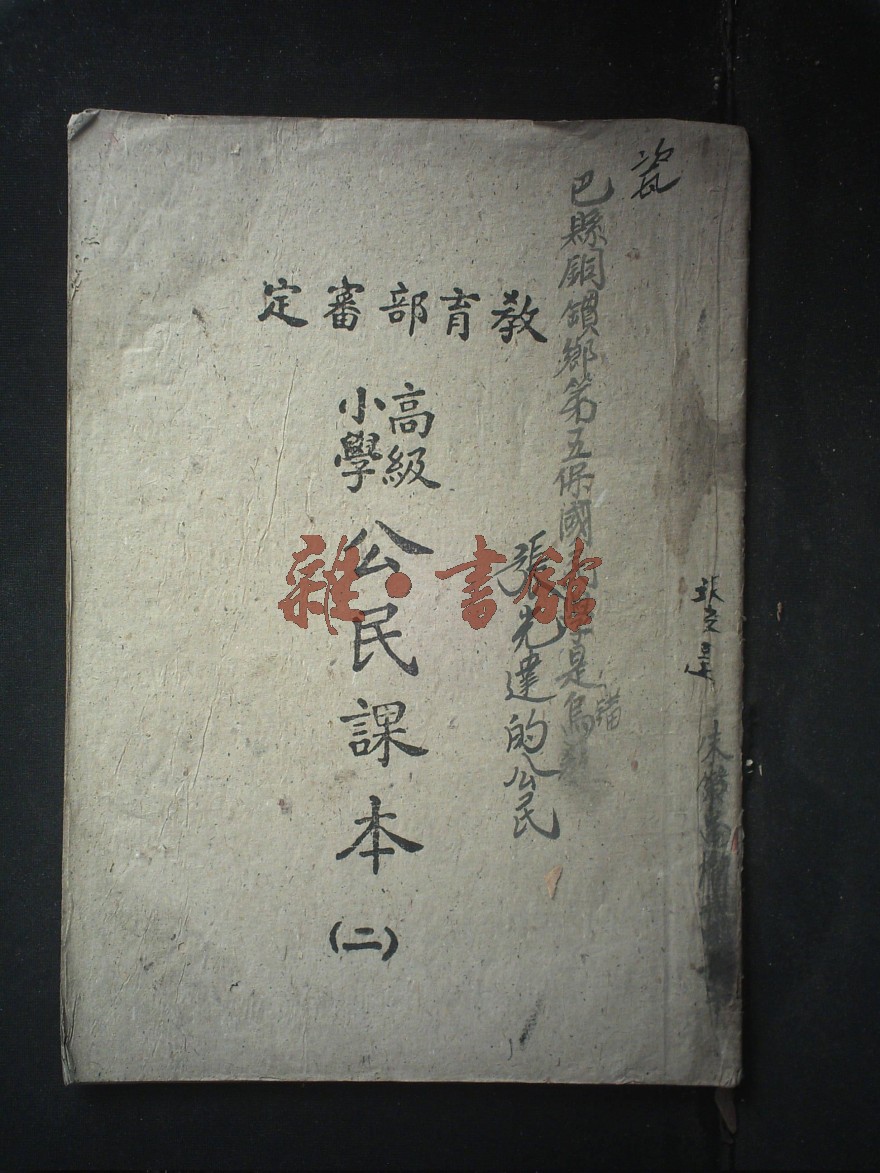 教育部審定
高級
小學
公民課本
(二)
瓷
巴縣銅鑵鄉第五保國
是
張光達的公民
雜·書館